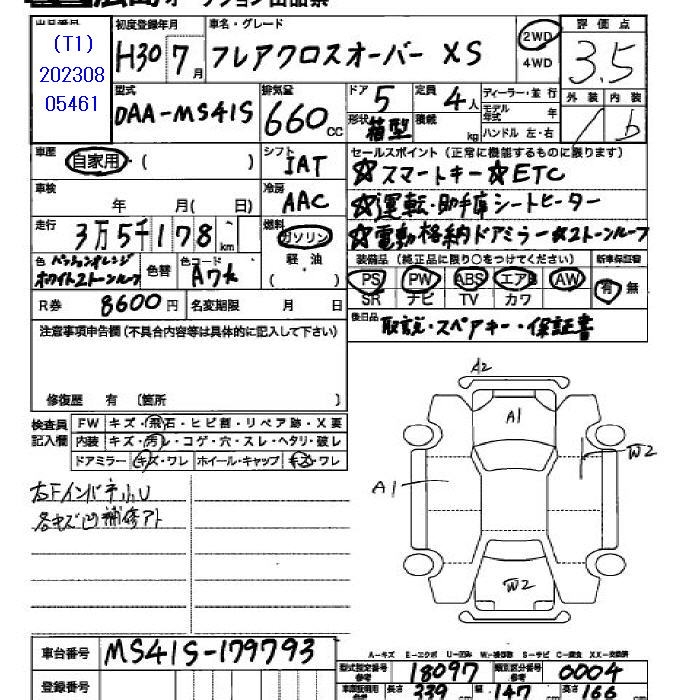 広島オークション出品票
出品番号
(T1)
202308
05461
初度登録年月
H30 7月
車名・グレード
フレアクロスオーバー XS
2WD
4WD
評価点
3.5
型式
DAA-MS41S
排気量
660cc
ドア 5
定員 4人
形状 箱型
積載 kg
ディーラー・並行
モデル年式 年
ハンドル 左・右
外装 内装
b
車歴
自家用・( )
シフト
IAT
セールスポイント(正常に機能するものに限ります)
☆スマートキー☆ETC
☆運転・助手席シートヒーター
☆電動格納ドアミラー☆2トーンルーフ
車検
年 月( 日)
冷房
AAC
走行
3万5千178km
燃料
ガソリン
軽油
( )
色 パッションオレンジ
ホワイト2トーンルーフ
色替
色コード
A7k
装備品(純正品に限り〇をつけてください)
新車保証書
PS PW ABS エアB AW
SR ナビ TV カワ
有 無
R券 8600円
名変期限 月 日
後日品
取説・スペアキー・保証書
注意事項申告欄(不具合内容等は具体的に記入して下さい)
修復歴 有 〔箇所 〕
検査員
記入欄
FW キズ・飛石・ヒビ割・リペア跡・X要
内装 キズ・汚レ・コゲ・穴・スレ・ヘタリ・破レ
ドアミラー キズ・ワレ ホイール・キャップ キズ・ワレ
右Fインパネ小U
各キズ凹補修アト
A2
A1
W2
A1
W2
A-キズ E-エクボ U-凹み W-補修跡 S-サビ C-腐食 XX-交換済
車台番号 MS41S-179793
型式指定番号 参考 18097
類別区分番号 参考 0004
登録番号
長さ 339cm 幅 147cm 高さ 166cm